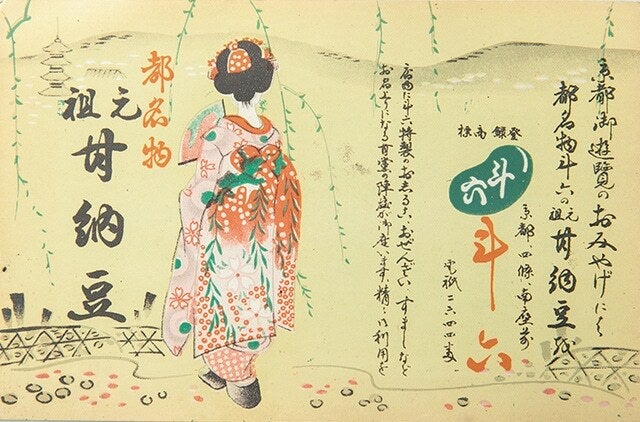 京都御遊覧のおみやげには
都名物斗六の元祖甘納豆を
登録商標
斗六
斗六
京都・四條・南座前
電祇二六四四番
店内に斗六特製のおしるこ、おぜんざい、すましなど
お召上りになる甘党の陣営が御座います、精々御利用を
都名物
元祖
甘納豆